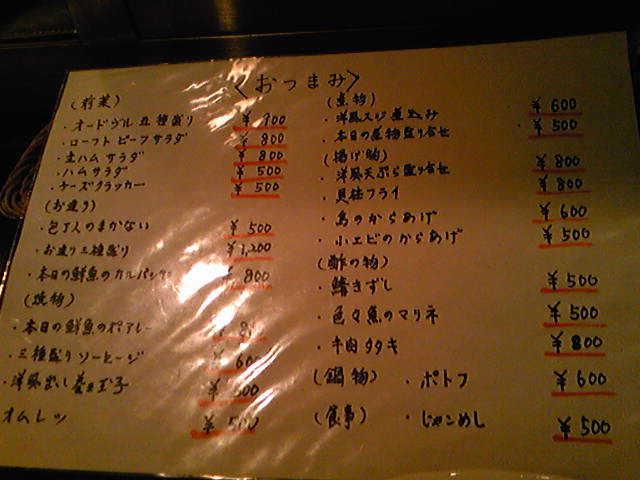 <おつまみ>
(前菜)
・オードヴル五種盛り ¥900
・ローストビーフサラダ ¥800
・生ハムサラダ ¥800
・ハムサラダ ¥500
・チーズクラッカー ¥500
(お造り)
・包丁人のまかない ¥500
・お造り三種盛り ¥1,200
・本日の鮮魚のカルパッチョ ¥800
(焼物)
・本日の鮮魚のポアレー ¥8
・三種盛りソーセージ ¥600
・洋風出し巻玉子 ¥500
オムレツ ¥500
(煮物)
・洋風スジ煮込み ¥600
・本日の煮物盛り合せ ¥500
(揚げ物)
・洋風天ぷら盛り合せ ¥800
・貝柱フライ ¥800
・鳥のからあげ ¥600
・小エビのからあげ ¥500
(酢の物)
・鰭きずし ¥500
・色々魚のマリネ ¥500
・牛肉タタキ ¥800
(鍋物) ・ポトフ ¥600
(食事) ・じゃこめし ¥500